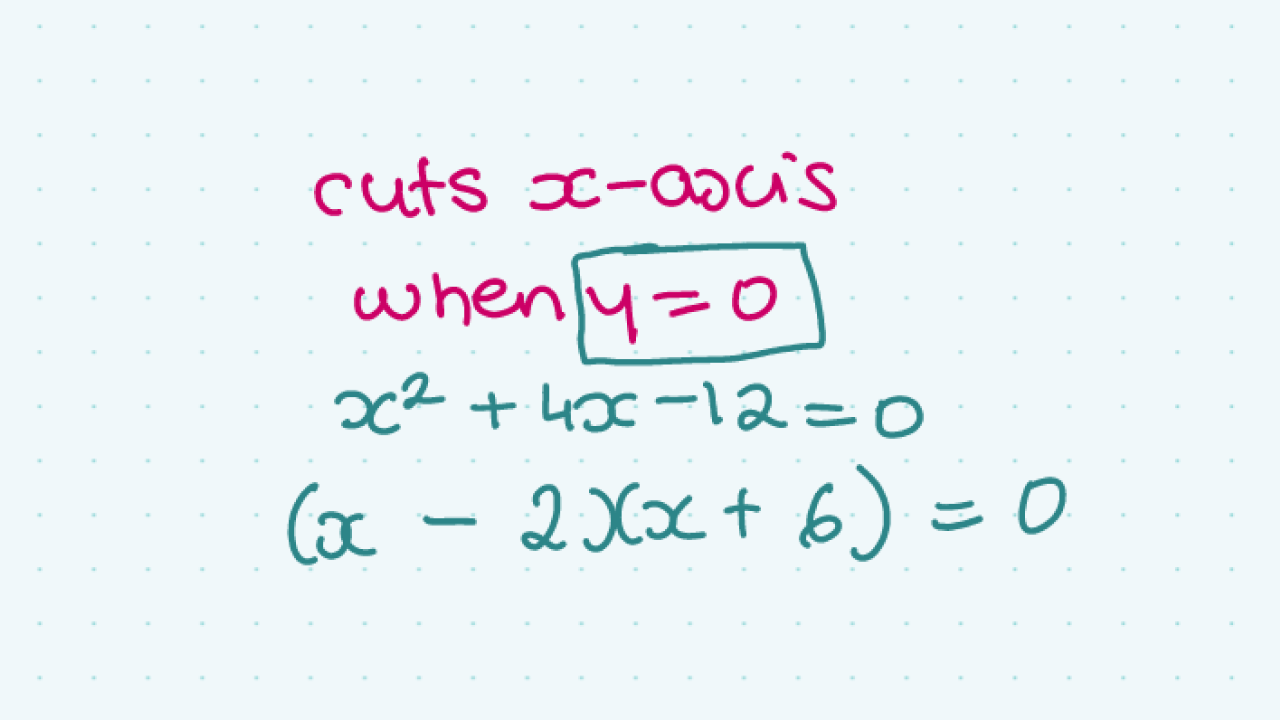 cuts x-axis
when y = 0
x² + 4x - 12 = 0
(x - 2)(x + 6) = 0